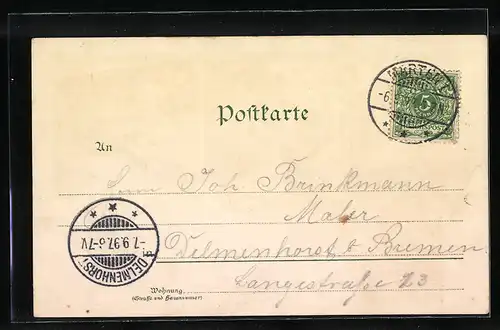 Postkarte
An
Herrn Joh. Brinkmann
Maler
Delmenhorst b Bremen
Langestraße 23
Wohnung
(Straße und Hausnummer)
5
DELMENHORST
-7.9.97.6-7V